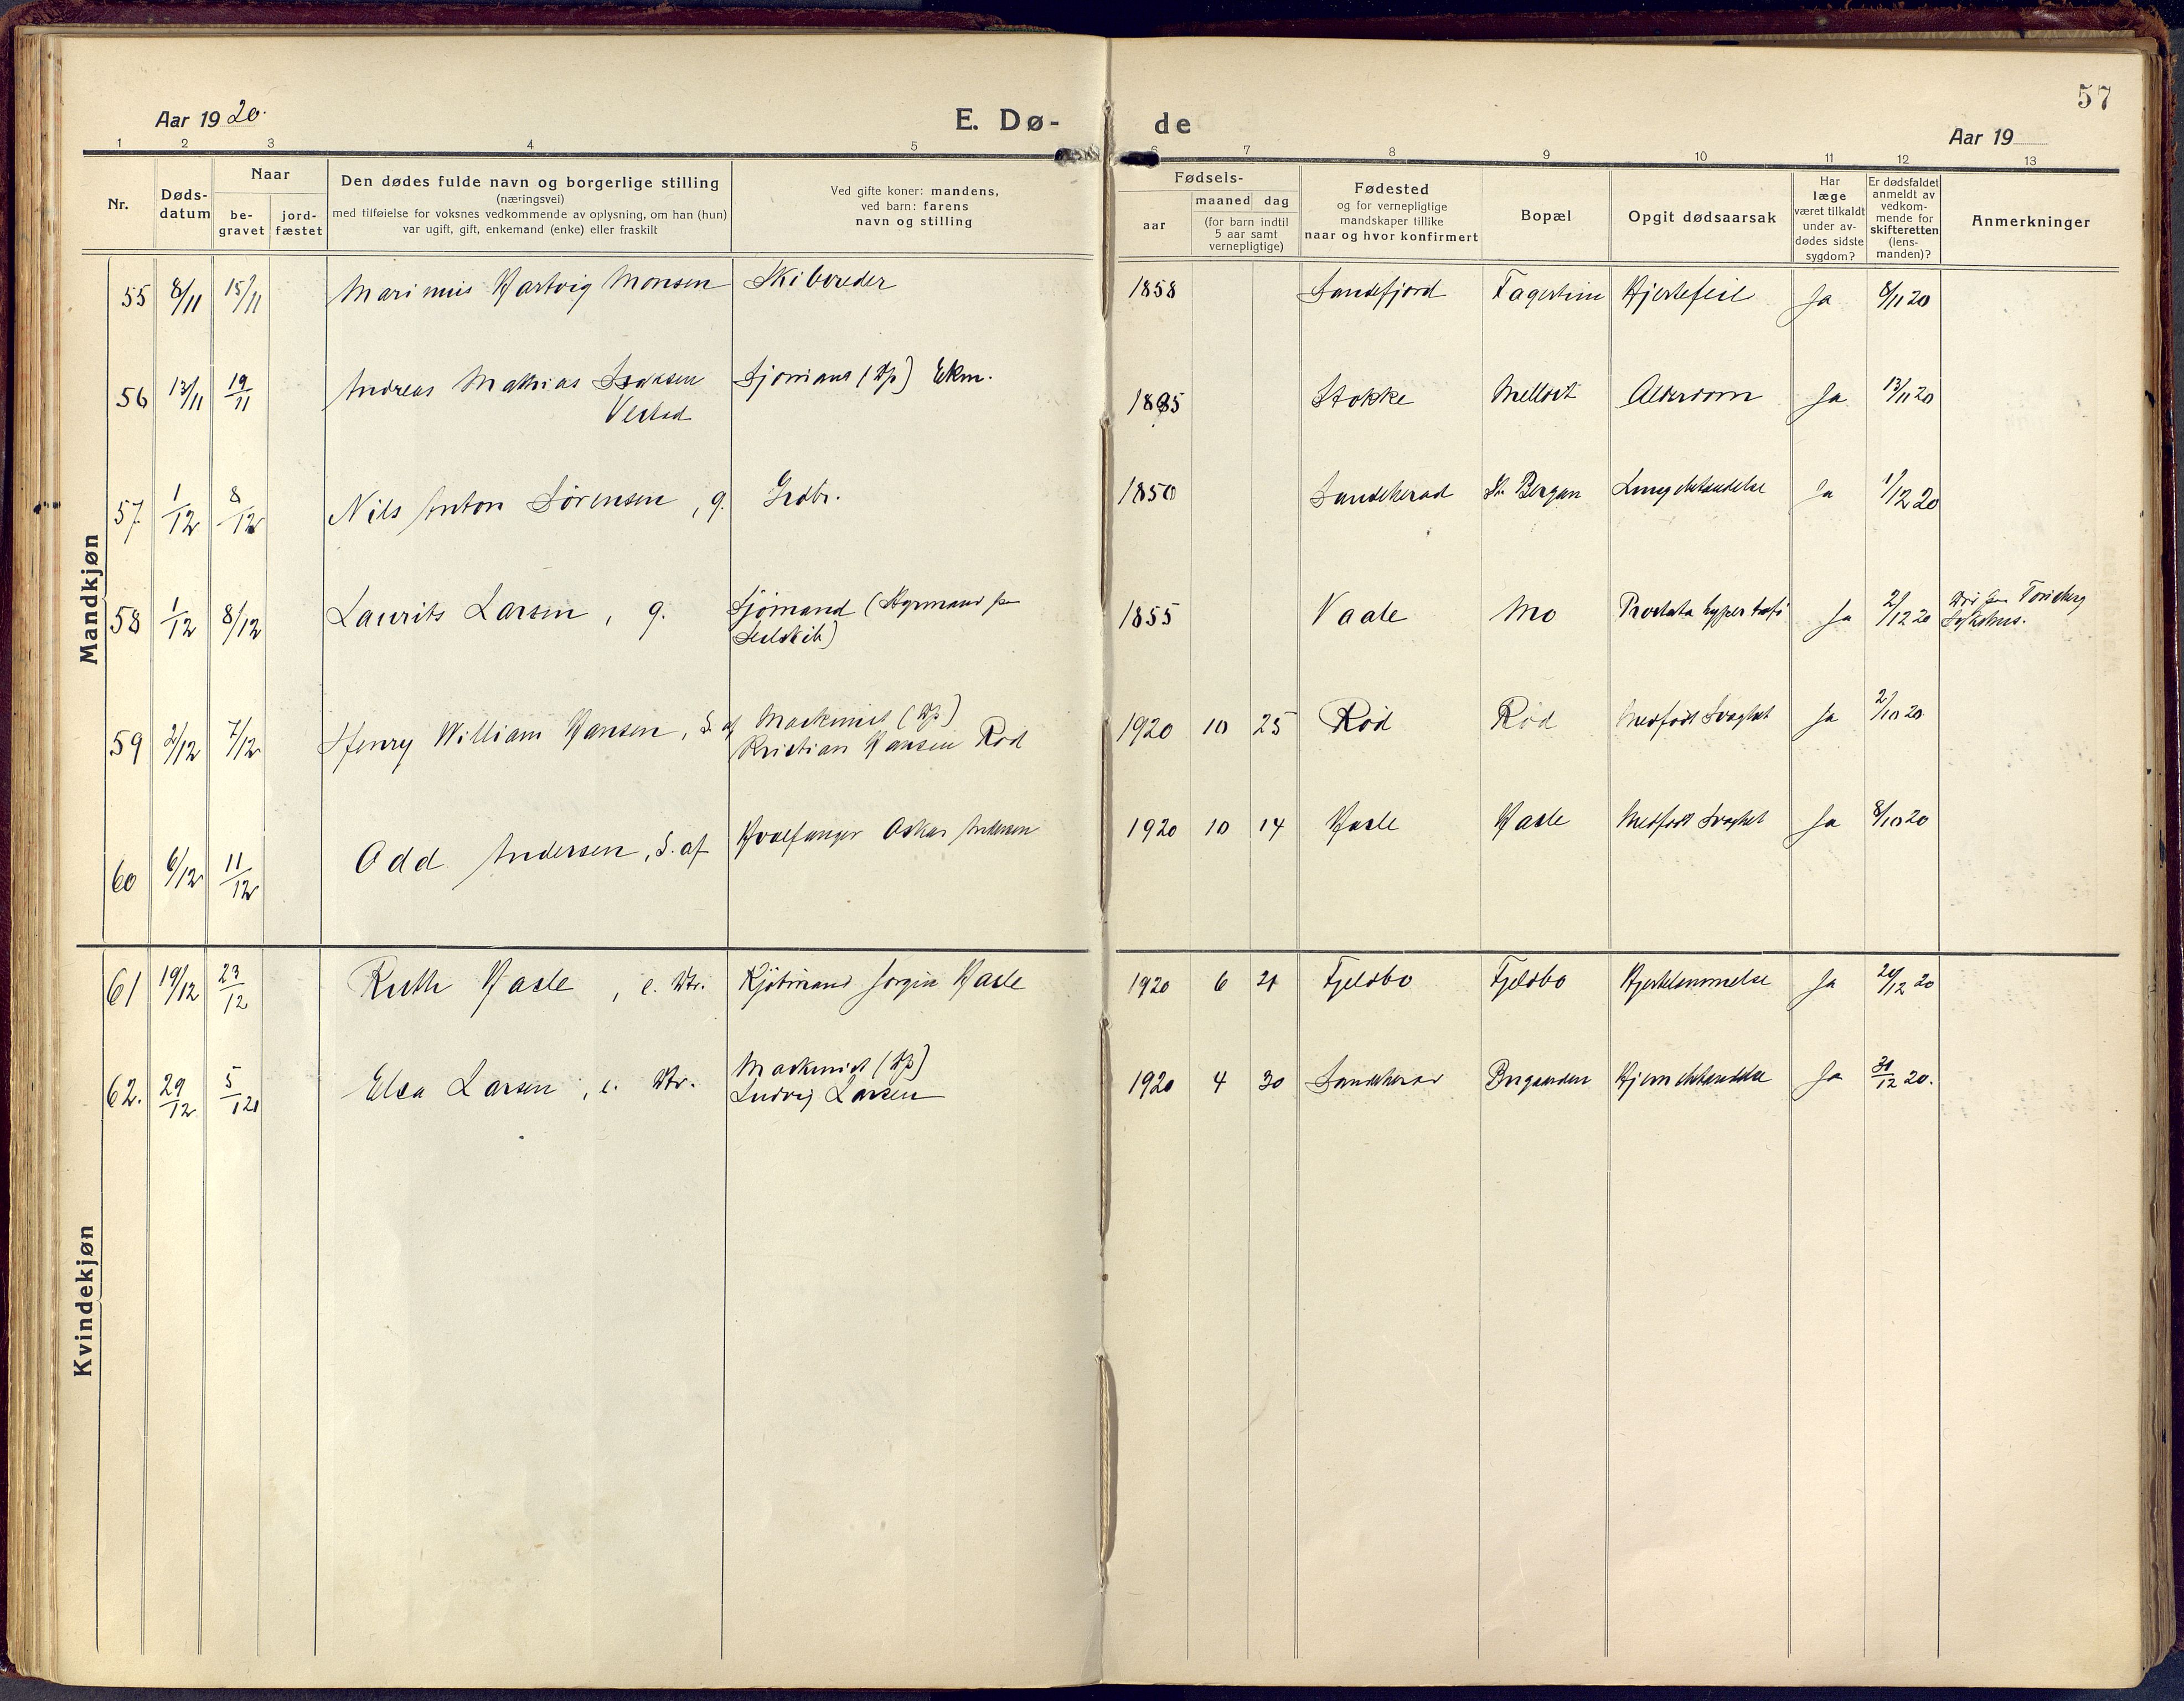 57
Aar 1920.
E. Dø-
de
Aar 19
1 2 3 4 5 6 7 8 9 10 11 12 13
Nr.
Døds-
datum
Naar
be-
gravet
jord-
fæstet
Den dødes fulde navn og borgerlige stilling
(næringsvei)
med tilføielse for voksnes vedkommende av oplysning, om han (hun)
var ugift, gift, enkemand (enke) eller fraskilt
Ved gifte koner: mandens,
ved barn: farens
navn og stilling
Fødsels-
aar
maaned dag
(for barn indtil
5 aar samt
vernepligtige)
Fødested
og for vernepligtige
mandskaper tillike
naar og hvor konfirmert
Bopæl
Opgit dødsaarsak
Har
læge
været tilkaldt
under av-
dødes sidste
sygdom?
Er dødsfaldet
anmeldt av
vedkom-
mende for
skifteretten
(lens-
manden)?
Anmerkninger
Mandkjøn
55 8/11 15/11 Marinius Hartvig Monsen Skibsreder 1858 Sandefjord Fagerheim Hjertefeil Ja 8/11 20
56 13/11 19/11 Andreas Mathias Isaksen Sjømand (Hp) Ekm. Stokke Alderdom Ja 13/11 20
Vestad
57. 1/12 8/12 Nils Anton Sørensen, g. Grdbr. 1850 Sandeherad St. Bergan Lungebetændelse Ja 1/12 20
58 1/12 8/12 Laurits Larsen, g. Sjømand (Styrmand paa 1855 Vaale Mo Prostata hypertrofi Ja 2/12 20 Død paa Tønsberg
Seilskib) Sykehus.
59 2/12 7/12 Henry William Hansen, S. af Maskinist (Hp) 1920 10 25 Rød Rød Medfødt Svaghet Ja 2/10 20
Kristian Hansen Rød
60 6/12 11/12 Odd Andersen, S. af Hvalfanger Oskar Andersen 1920 10 14 Hasle Hasle Medfødt Svaghet Ja 8/10 20
Kvindekjøn
61 19/12 23/12 Ruth Hasle, e. Dtr. Kjøbmand Jørgin Hasle 1920 6 21 Fjeldbo Fjeldbo Hjertelammelse Ja 20/12 20
62. 29/12 5/1 21 Elsa Larsen, e. Dtr. Maskinist (Hp) 1920 4 30 Sandeherad Bugaarden Hjernebetændelse Ja 30/12 20.
Ludvig Larsen